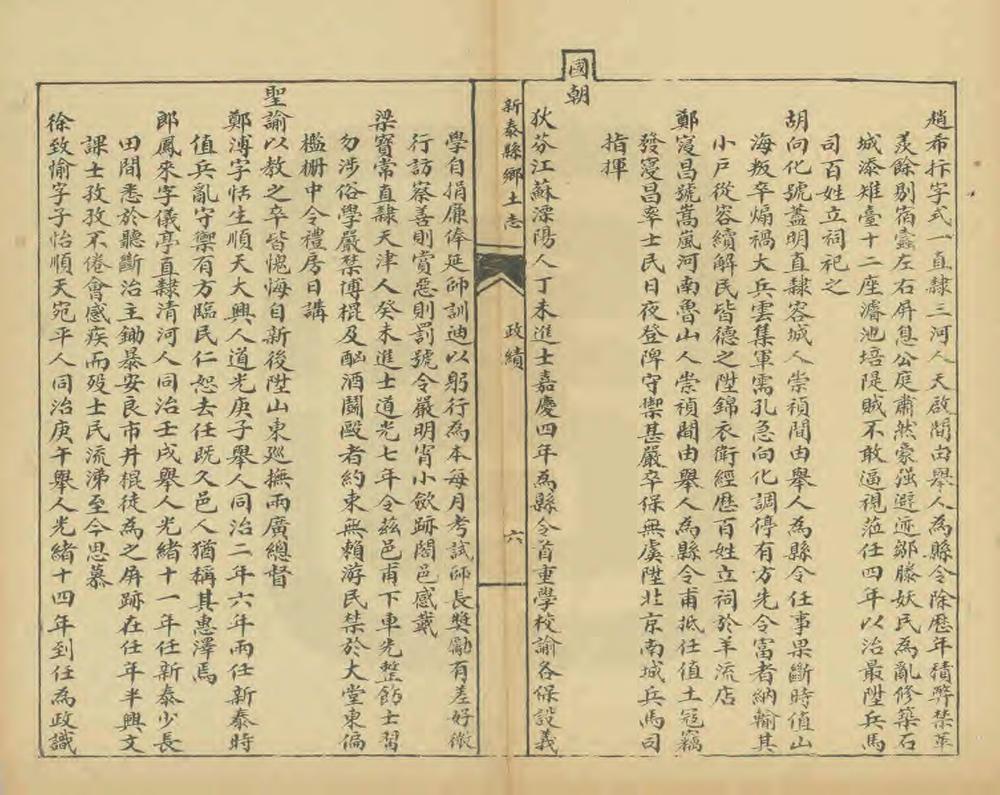 趙希抃字式一直隸三河人天啟間由舉人為縣令除歷年積弊禁革
羨餘剔宿蠹左右屏息公庭肅然豪强避迹鄒滕妖民為亂修築石
城添雉臺十二座濬池培隄賊不敢逼視蒞任四年以治最陞兵馬
司百姓立祠祀之
胡向化號蓋明直隸容城人崇禎間由舉人為縣令任事果斷時值山
海叛卒煽禍大兵雲集軍需孔急向化調停有方先令富者納輸其
小戶從容續解民皆德之陞錦衣衛經歷百姓立祠於羊流店
鄭寔昌號嵩風河南魯山人崇禎間由舉人為縣令甫抵任值土寇竊
發寔昌率士民日夜登陴守禦甚嚴卒保無虞陞北京南城兵馬司
指揮
國朝
狄芬江蘇溧陽人丁未進士嘉慶四年為縣令首重學校諭各保設義
新泰縣鄉土志
政績
六
學自捐廉俸延師訓迪以躬行為本每月考試師長獎勵有差好微
行訪察善則賞惡則罰號令嚴明宵小歛跡闔邑感戴
梁寶常直隸天津人癸未進士道光七年令茲邑甫下車先整飭士習
勿涉俗學嚴禁博棍及酗酒鬭毆者約束無賴游民禁於大堂東偏
檻柵中令禮房日講
聖諭以教之卒皆愧悔自新後陞山東巡撫兩廣總督
鄭溥字恬生順天大興人道光庚子舉人同治二年六年兩任新泰時
值兵亂守禦有方臨民仁恕去任既久邑人猶稱其惠澤焉
郎鳳來字儀亭直隸清河人同治壬戌舉人光緒十一年任新泰少長
田間悉於聽斷治主鋤暴安良市井棍徒為之屏跡在任年半興文
課士孜孜不倦會感疾而歿士民流涕至今思慕
徐致愉字子怡順天宛平人同治庚午舉人光緒十四年到任為政識